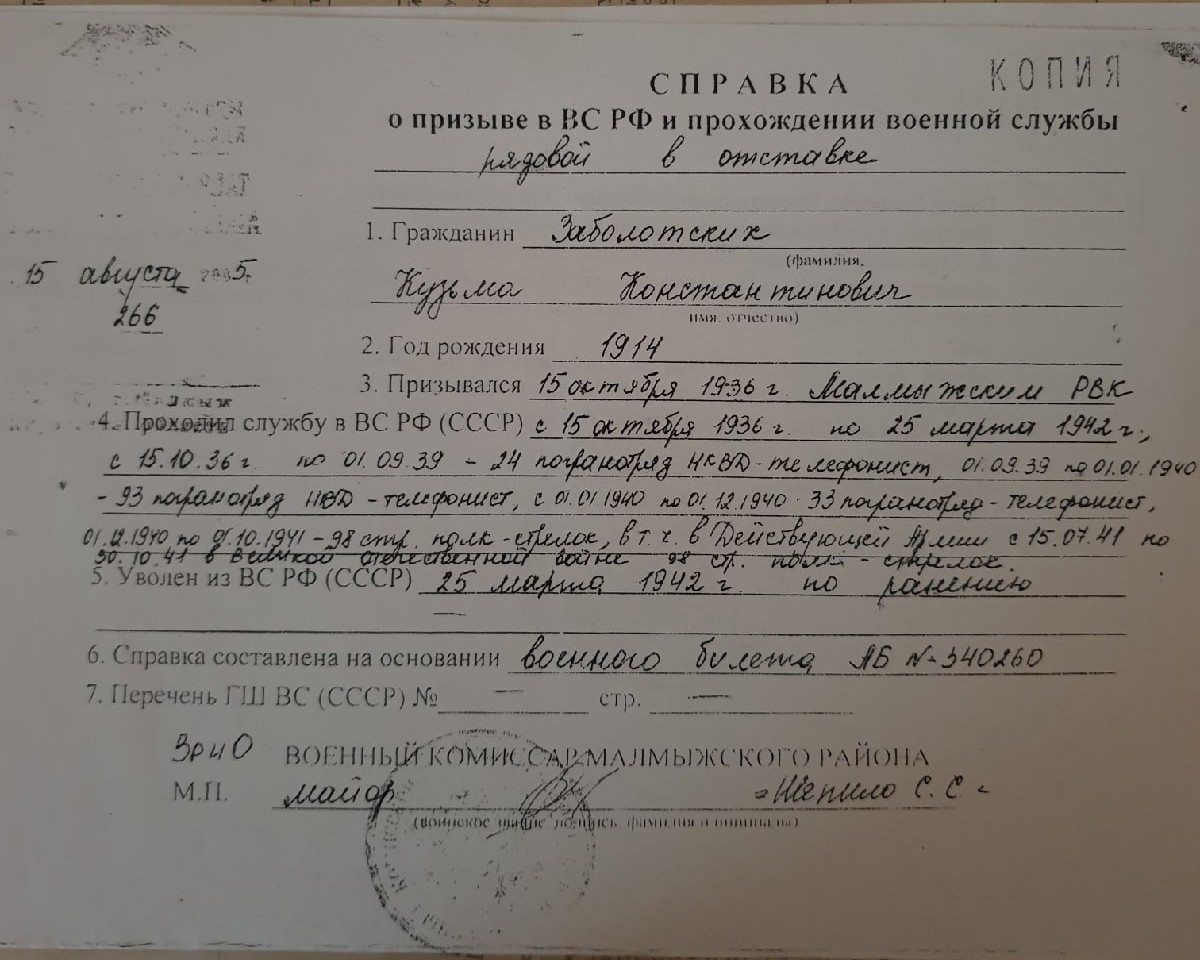 КОПИЯ
СПРАВКА
о призыве в ВС РФ и прохождении военной службы
рядовой в отставке
1. Гражданин Заболотских
(фамилия,
15 августа 2005г
Кузьма Константинович
имя, отчество)
266
2. Год рождения 1914
3. Призывался 15 октября 1936 г. Малмыжским РВК
4. Проходил службу в ВС РФ (СССР) с 15 октября 1936 г. по 25 марта 1942 г.,
с 15.10.36 г. по 01.09.39 - 24 погранотряд НКВД-телефонист, 01.09.39 по 01.01.1940
- 93 погранотряд НВД - телефонист, с 01.01.1940 по 01.12.1940 - 33 погранотряд - телефонист,
01.12.1940 по 01.10.1941 - 98 стр. полк - стрелок, в т.ч. в Действующей Армии с 15.07.41 по
30.10.41 в Великой Отечественной войне 98 стр. полк - стрелок.
5. Уволен из ВС РФ (СССР) 25 марта 1942 г. по ранению
—
6. Справка составлена на основании военного билета АБ №-340260
7. Перечень ГШ ВС (СССР) № — стр. —
ВрИО ВОЕННЫЙ КОМИССАР МАЛМЫЖСКОГО РАЙОНА
М.П. майор С. С.
(воинское звание, подпись, фамилия и инициалы)